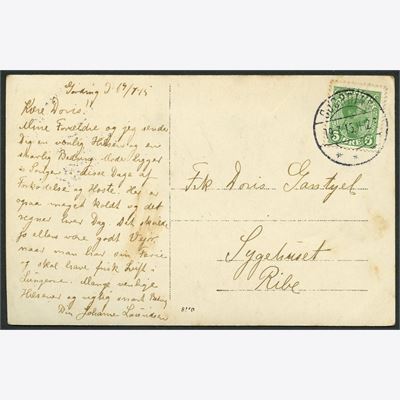 Gording d 19/7 15
Kære Doris!
Mine Forældre og jeg sender
Dig en venlig Hilsen og en
snarlig Bedring. Moder ligger
i Sengen i disse Dage af
Forkølelse og Hoste. Her er
ogsaa meget koldt og det
regner hver Dag. Det skulde
jo ellers være godt Vejr,
naar man har sin Ferie
og skal have frisk Luft i
Lungerne. Mange venlige
Hilsener og rigtig snart Bedring
Din Johanne Lauridsen
Frk Doris
Sygehuset
Ribe
5